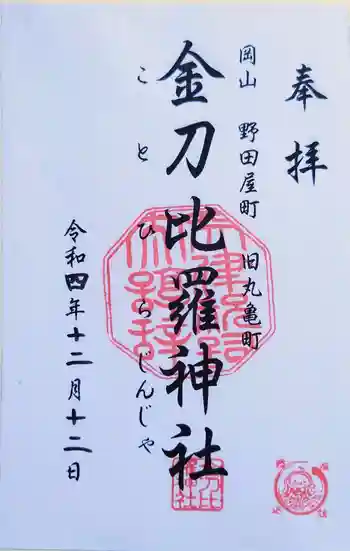 奉拝
岡山 野田屋町 旧丸亀町
金刀比羅神社
ことひらじんじゃ
令和四年十二月十二日